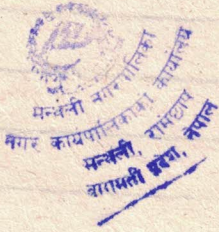 मन्थली नगरपालिका
नगर कार्यपालिकाको कार्यालय
मन्थली, रामेछाप
बागमती प्रदेश, नेपाल